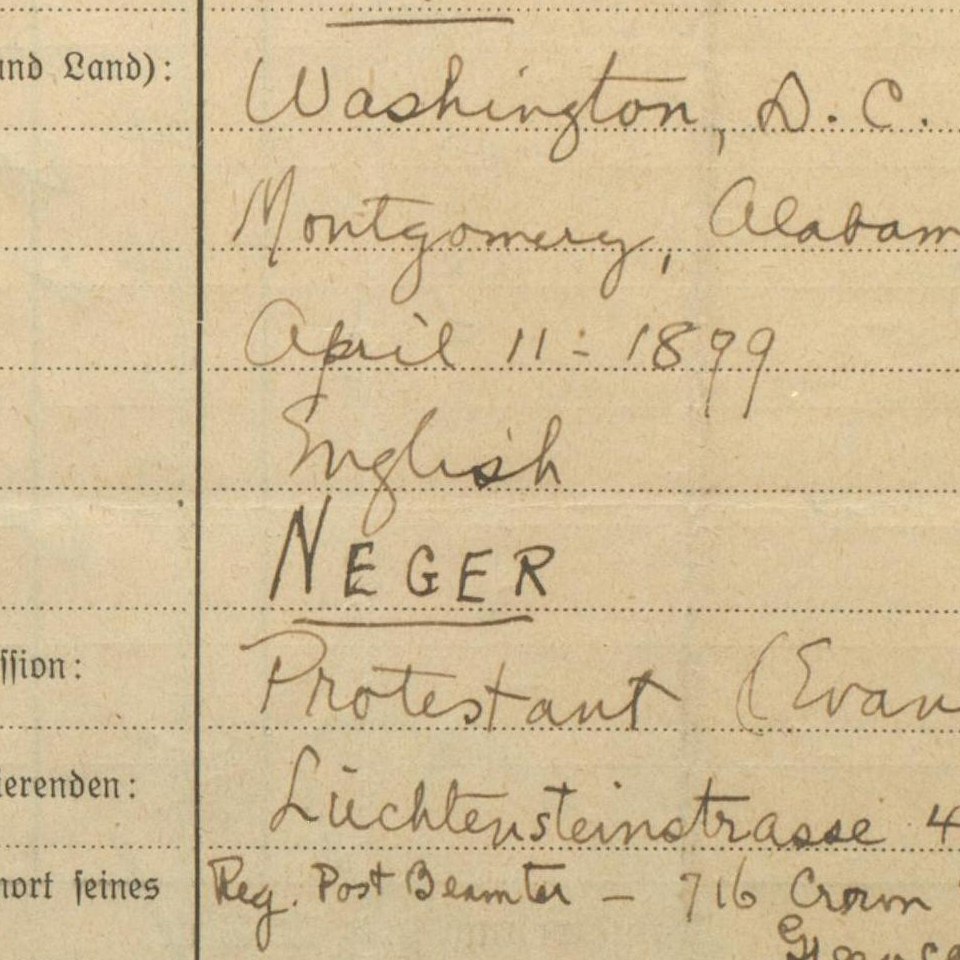 und Land): Washington, D. C.
Montgomery, Alabam
April 11 - 1899
English
NEGER
ssion: Protestant (Evan
ierenden: Liechtensteinstrasse 4
nort seines Reg. Post Beamter — 716 Crown